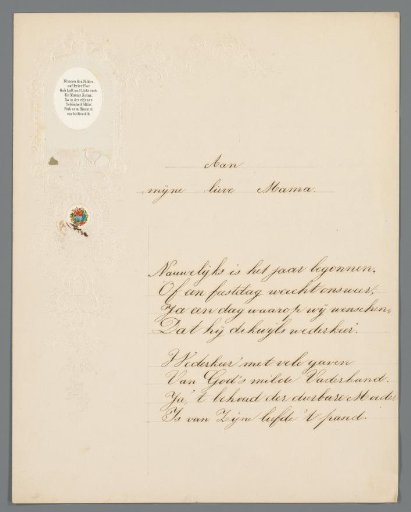 Aan
mijne lieve Mama.
Nauwelijks is het jaar begonnen,
Of een feestdag wacht ons weer,
Ja een dag waarop wij wenschen,
Dat hij dikwijls wederkeer'.
Wederkeer' met vele gaven
Van God's milde Vaderhand.
Ja, 't behoud der dierbare Moeder
Is van Zijne liefde 't pand.